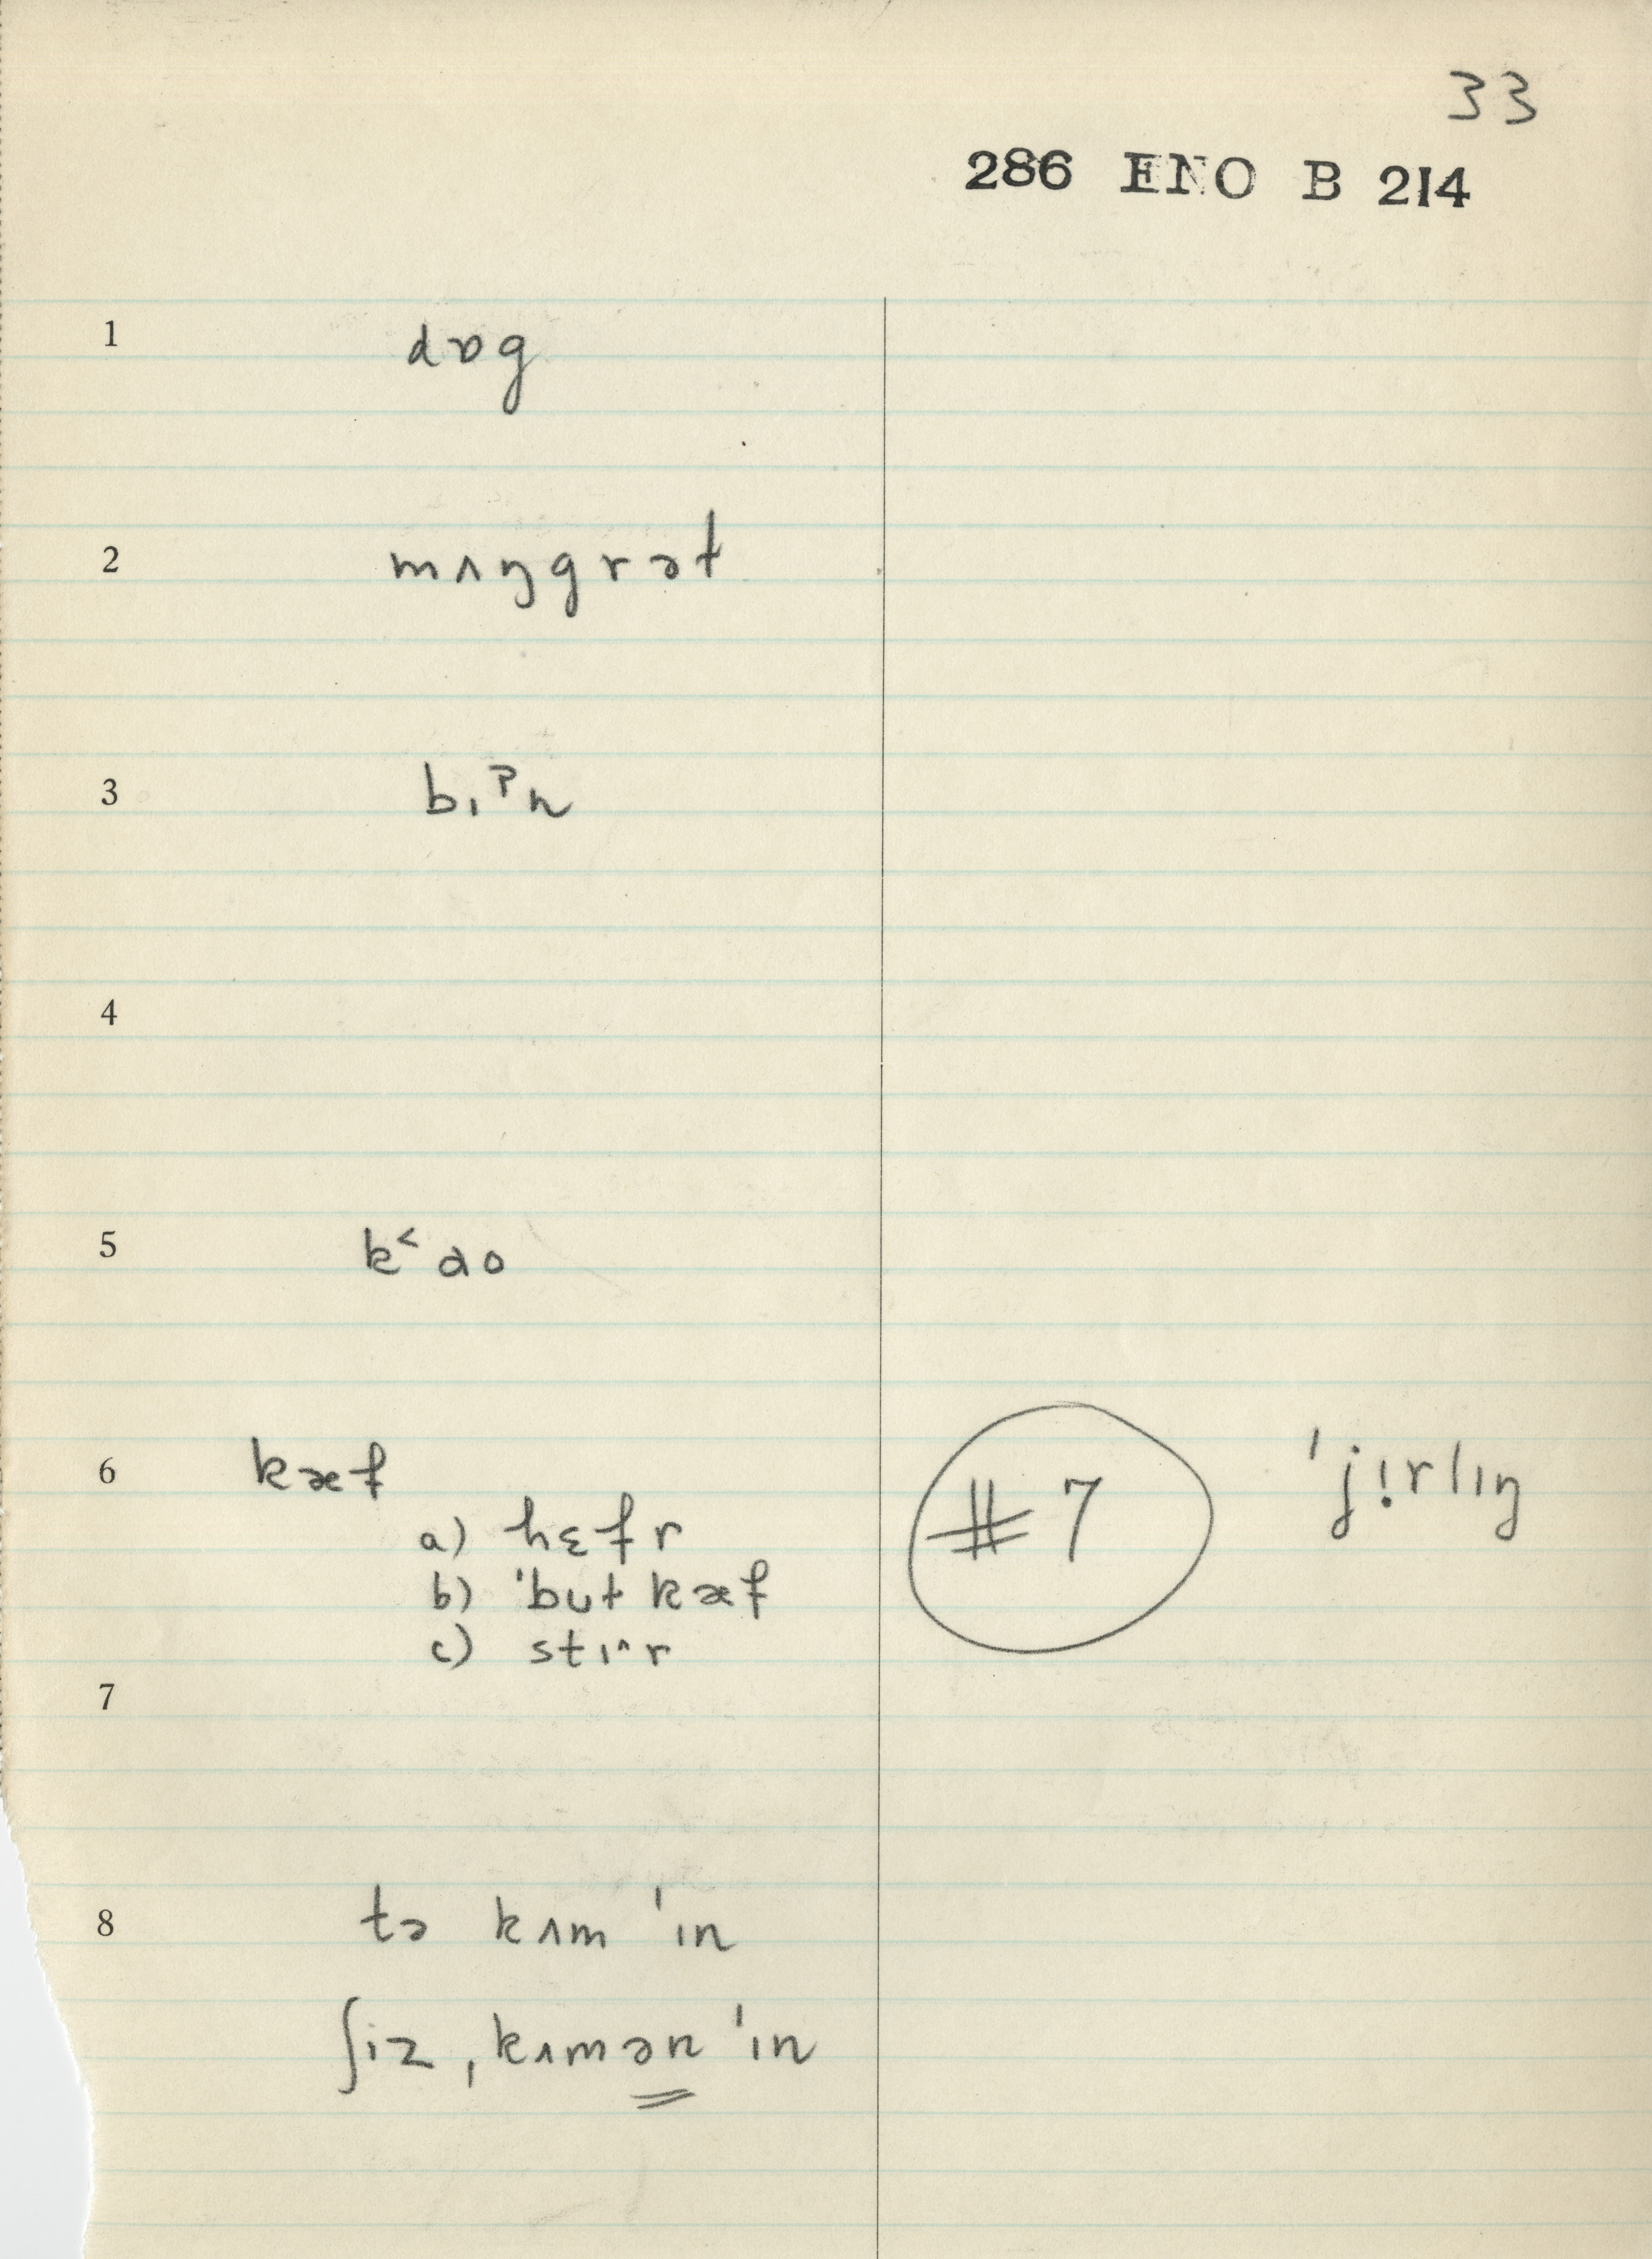 33
286 ENO B 214
1 dɒg
2 mʌŋgrət
3 bɪˀn
4
5 k˂ ɑo
6 kæf
a) hɛfr
b) ˈbut kæf
c) stɪ^r
#7 ˈjịrlɪŋ
7
8 tə kʌm ˈɪn
ʃiz ˌkʌmən ˈɪn